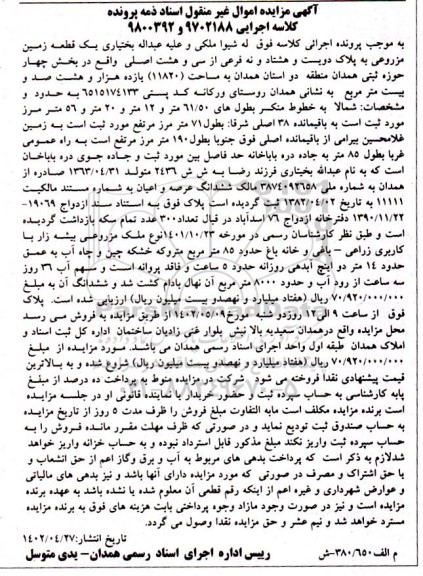 آگهی مزایده اموال غیر منقول اسناد ذمه پرونده
کلاسه اجرایی ۹۷۰۲۱۸۸ و ۹۸۰۰۳۹۲
به موجب پرونده اجرائی کلاسه فوق له شیوا ملکی و علیه عبداله بختیاری یک قطعه زمین
مزروعی به پلاک دویست و هشتاد و نه فرعی از سی و هشت اصلی واقع در بخش چهار
حوزه ثبتی همدان منطقه دو استان همدان به مساحت (۱۱۸۲۰) یازده هزار و هشت صد و
بیست متر مربع به نشانی همدان روستای ورکانه کد پستی ۶۵۱۵۱۷۴۱۳۳ به حدود و
مشخصات: شمالا به خطوط منکسر بطول های ۶۱/۵۰ متر و ۱۲ متر و ۲۰ متر و ۵۶ متر مرز
مورد ثبت است به باقیمانده ۳۸ اصلی شرقا: بطول ۷۱ متر مرز مرتفع مورد ثبت است به زمین
غلامحسین بیرامی از باقیمانده اصلی فوق جنوبا بطول ۱۹۰ متر مرز مرتفع است به راه عمومی
غربا بطول ۸۵ متر به جاده دره باباخانه حد فاصل بین مورد ثبت و جاده جوی دره باباخان
است که به نام عبداله بختیاری فرزند رضا به ش ش ۲۴۳۶ متولد ۱۳۶۳/۰۴/۳۱ صادره از
همدان به شماره ملی ۳۸۷۴۰۹۲۶۵۸ مالک ششدانگ عرصه و اعیان به شماره مستند مالکیت
۱۱۱۱۱ به تاریخ ۱۳۸۷/۰۴/۰۲ ثبت گردیده است پلاک فوق به استناد سند ازدواج ۱۹۰۶۹-
۱۳۹۰/۱۱/۲۲ دفترخانه ازدواج ۷۶ اسدآباد در قبال تعداد ۳۰۰ عدد تمام سکه بازداشت گردیده
است و طبق نظر کارشناسان رسمی در مورخه ۱۴۰۱/۱۰/۲۳ نوع ملک مزروعی بیشه زار با
کاربری زراعی – باغی و خانه باغ حدود ۸۵ متر مربع متروکه خشکه چین و چاه آب به عمق
حدود ۱۴ متر دو اینچ آبدهی روزانه حدود ۵ ساعت و فاقد پروانه است و سهم آب ۳۶ روز
سه ساعت از رود آب و حدود ۸۰۰۰ متر مربع آن نهال بادام کشت شد و ششدانگ آن به مبلغ
۷۰/۹۲۰/۰۰۰/۰۰۰ ریال (هفتاد میلیارد و نهصدو بیست میلیون ریال) ارزیابی شده است. پلاک
فوق از ساعت ۹ الی ۱۲ روز دو شنبه مورخ ۱۴۰۲/۰۵/۰۹ از طریق مزایده به فروش می رسد
محل مزایده واقع در همدان سعیدیه بالا نبش بلوار غنی زادیان ساختمان اداره کل ثبت اسناد و
املاک همدان طبقه اول واحد اجرای اسناد رسمی همدان می باشد. مورد مزایده از مبلغ
۷۰/۹۲۰/۰۰۰/۰۰۰ ریال (هفتاد میلیارد و نهصدو بیست میلیون ریال) شروع شده و به بالاترین
قیمت پیشنهادی نقدا فروخته می شود شرکت در مزایده منوط به پرداخت ده درصد از مبلغ
پایه کارشناسی به حساب سپرده ثبت و حضور خریدار یا نماینده قانونی او در جلسه مزایده
است برنده مزایده مکلف است مابه التفاوت مبلغ فروش را ظرف مدت ۵ روز از تاریخ مزایده
به حساب صندوق ثبت تودیع نماید و در صورتی که ظرف مهلت مقرر مانده فروش را به
حساب سپرده ثبت واریز نکند مبلغ مذکور قابل استرداد نبوده و به حساب خزانه واریز خواهد
شد لازم به ذکر است که پرداخت بدهی های مربوط به آب و برق وگاز اعم از حق انشعاب و
یا حق اشتراک و مصرف در صورتی که مورد مزایده دارای آنها باشد و نیز بدهی های مالیاتی
و عوارض شهرداری و غیره اعم از اینکه رقم قطعی آن معلوم شده یا نشده باشد به عهده برنده
مزایده است و نیز در صورت وجود مازاد وجوه پرداختی بابت هزینه های فوق به برنده مزایده
مسترد خواهد شد و نیم عشر و حق مزایده نقدا وصول می گردد.
تاریخ انتشار: ۱۴۰۲/۰۴/۲۷
م الف ۳۸۰/۶۵۰-ش رییس اداره اجرای اسناد رسمی همدان- یدی متوسل